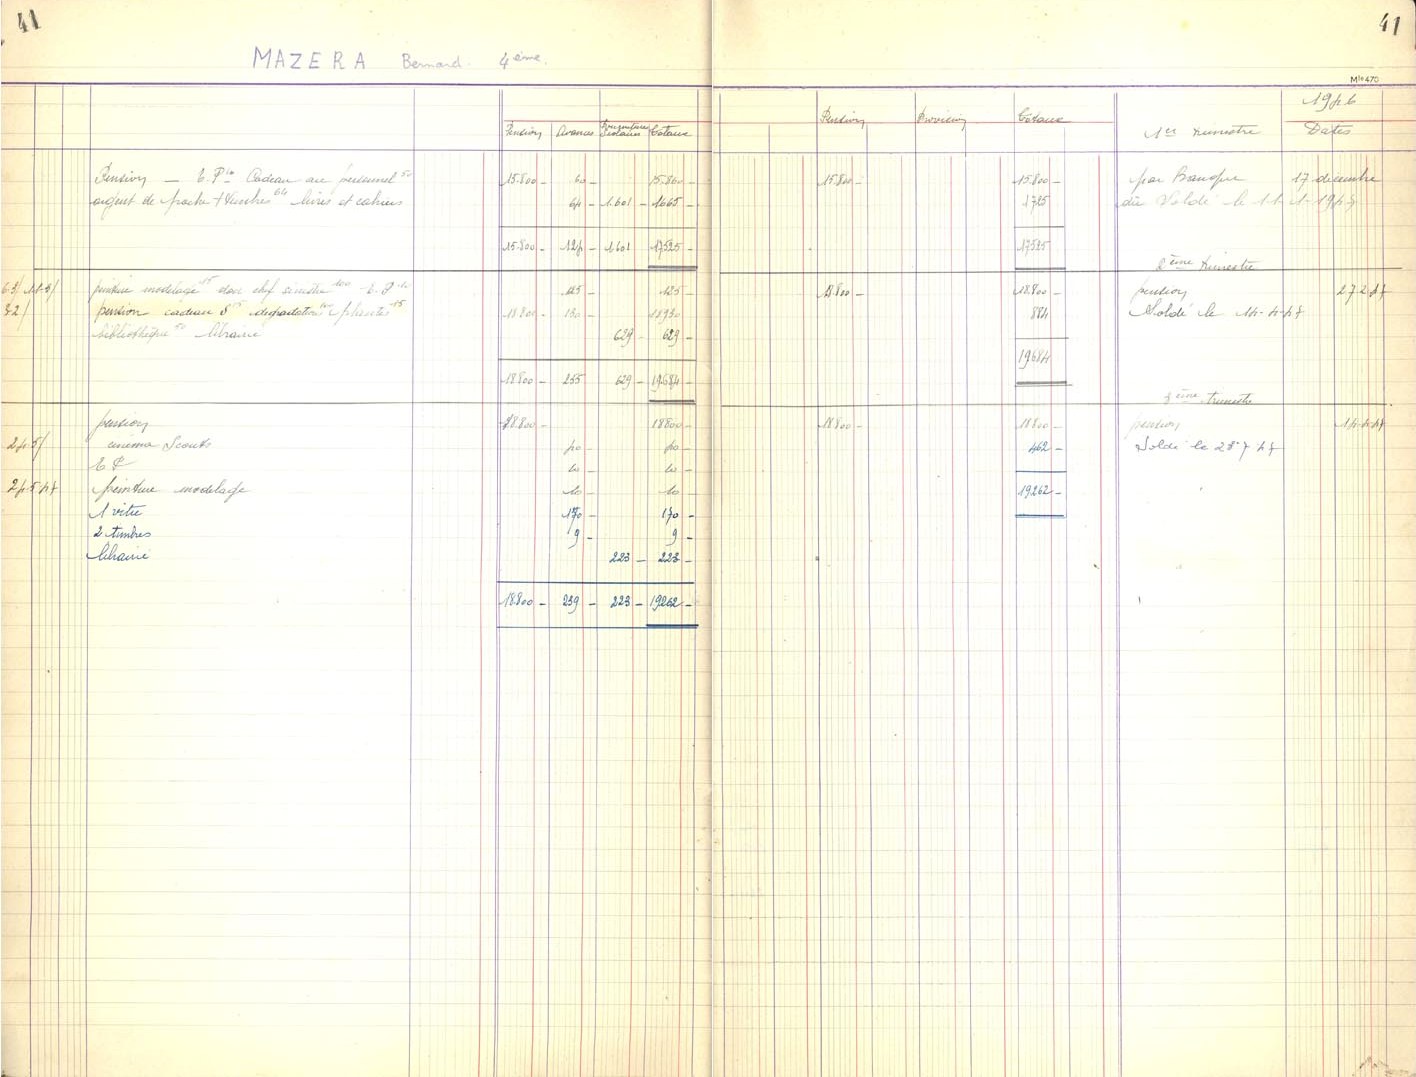 41
41
MAZERA Bernard. 4ème.
Mle 470
1946
Pension Avances Fournitures Scolaires Totaux
Pension Provision Totaux 1er trimestre Dates
Pension — T.P. 10 Cadeau au personnel 50 15.800 - 60 - 15.860 -
15.800 - 15.800 - par Banque 17 décembre
argent de poche + timbres 64 livres et cahiers 64 - 1.601 - 1665 -
1725 Soldé le 11-1-1947
15.800 - 124 - 1.601 17525 -
17525 -
2ème trimestre
peinture modelage 15 don chef sinistré 100 T.P. 10 125 - 125 -
18.800 - 18.800 - pension 27 2 47
pension cadeau S 15 dégradations plantes 15 18.800 - 130 - 18930 -
884 Soldé le 14-4-47
bibliothèque 50 librairie 629 - 629 -
19684
18.800 - 255 629 - 19684 -
3ème trimestre
pension 18.800 - 18800 -
18.800 - 18.800 - pension 14.4.47
24 5/ cinéma Scouts 40 - 40 -
462 - Soldé le 28 7 47
T P 10 - 10 -
24 5 47 peinture modelage 10 - 10 -
19262 -
1 vitre 170 - 170 -
2 timbres 9 - 9 -
librairie 223 - 223 -
18.800 - 239 - 223 - 19262 -